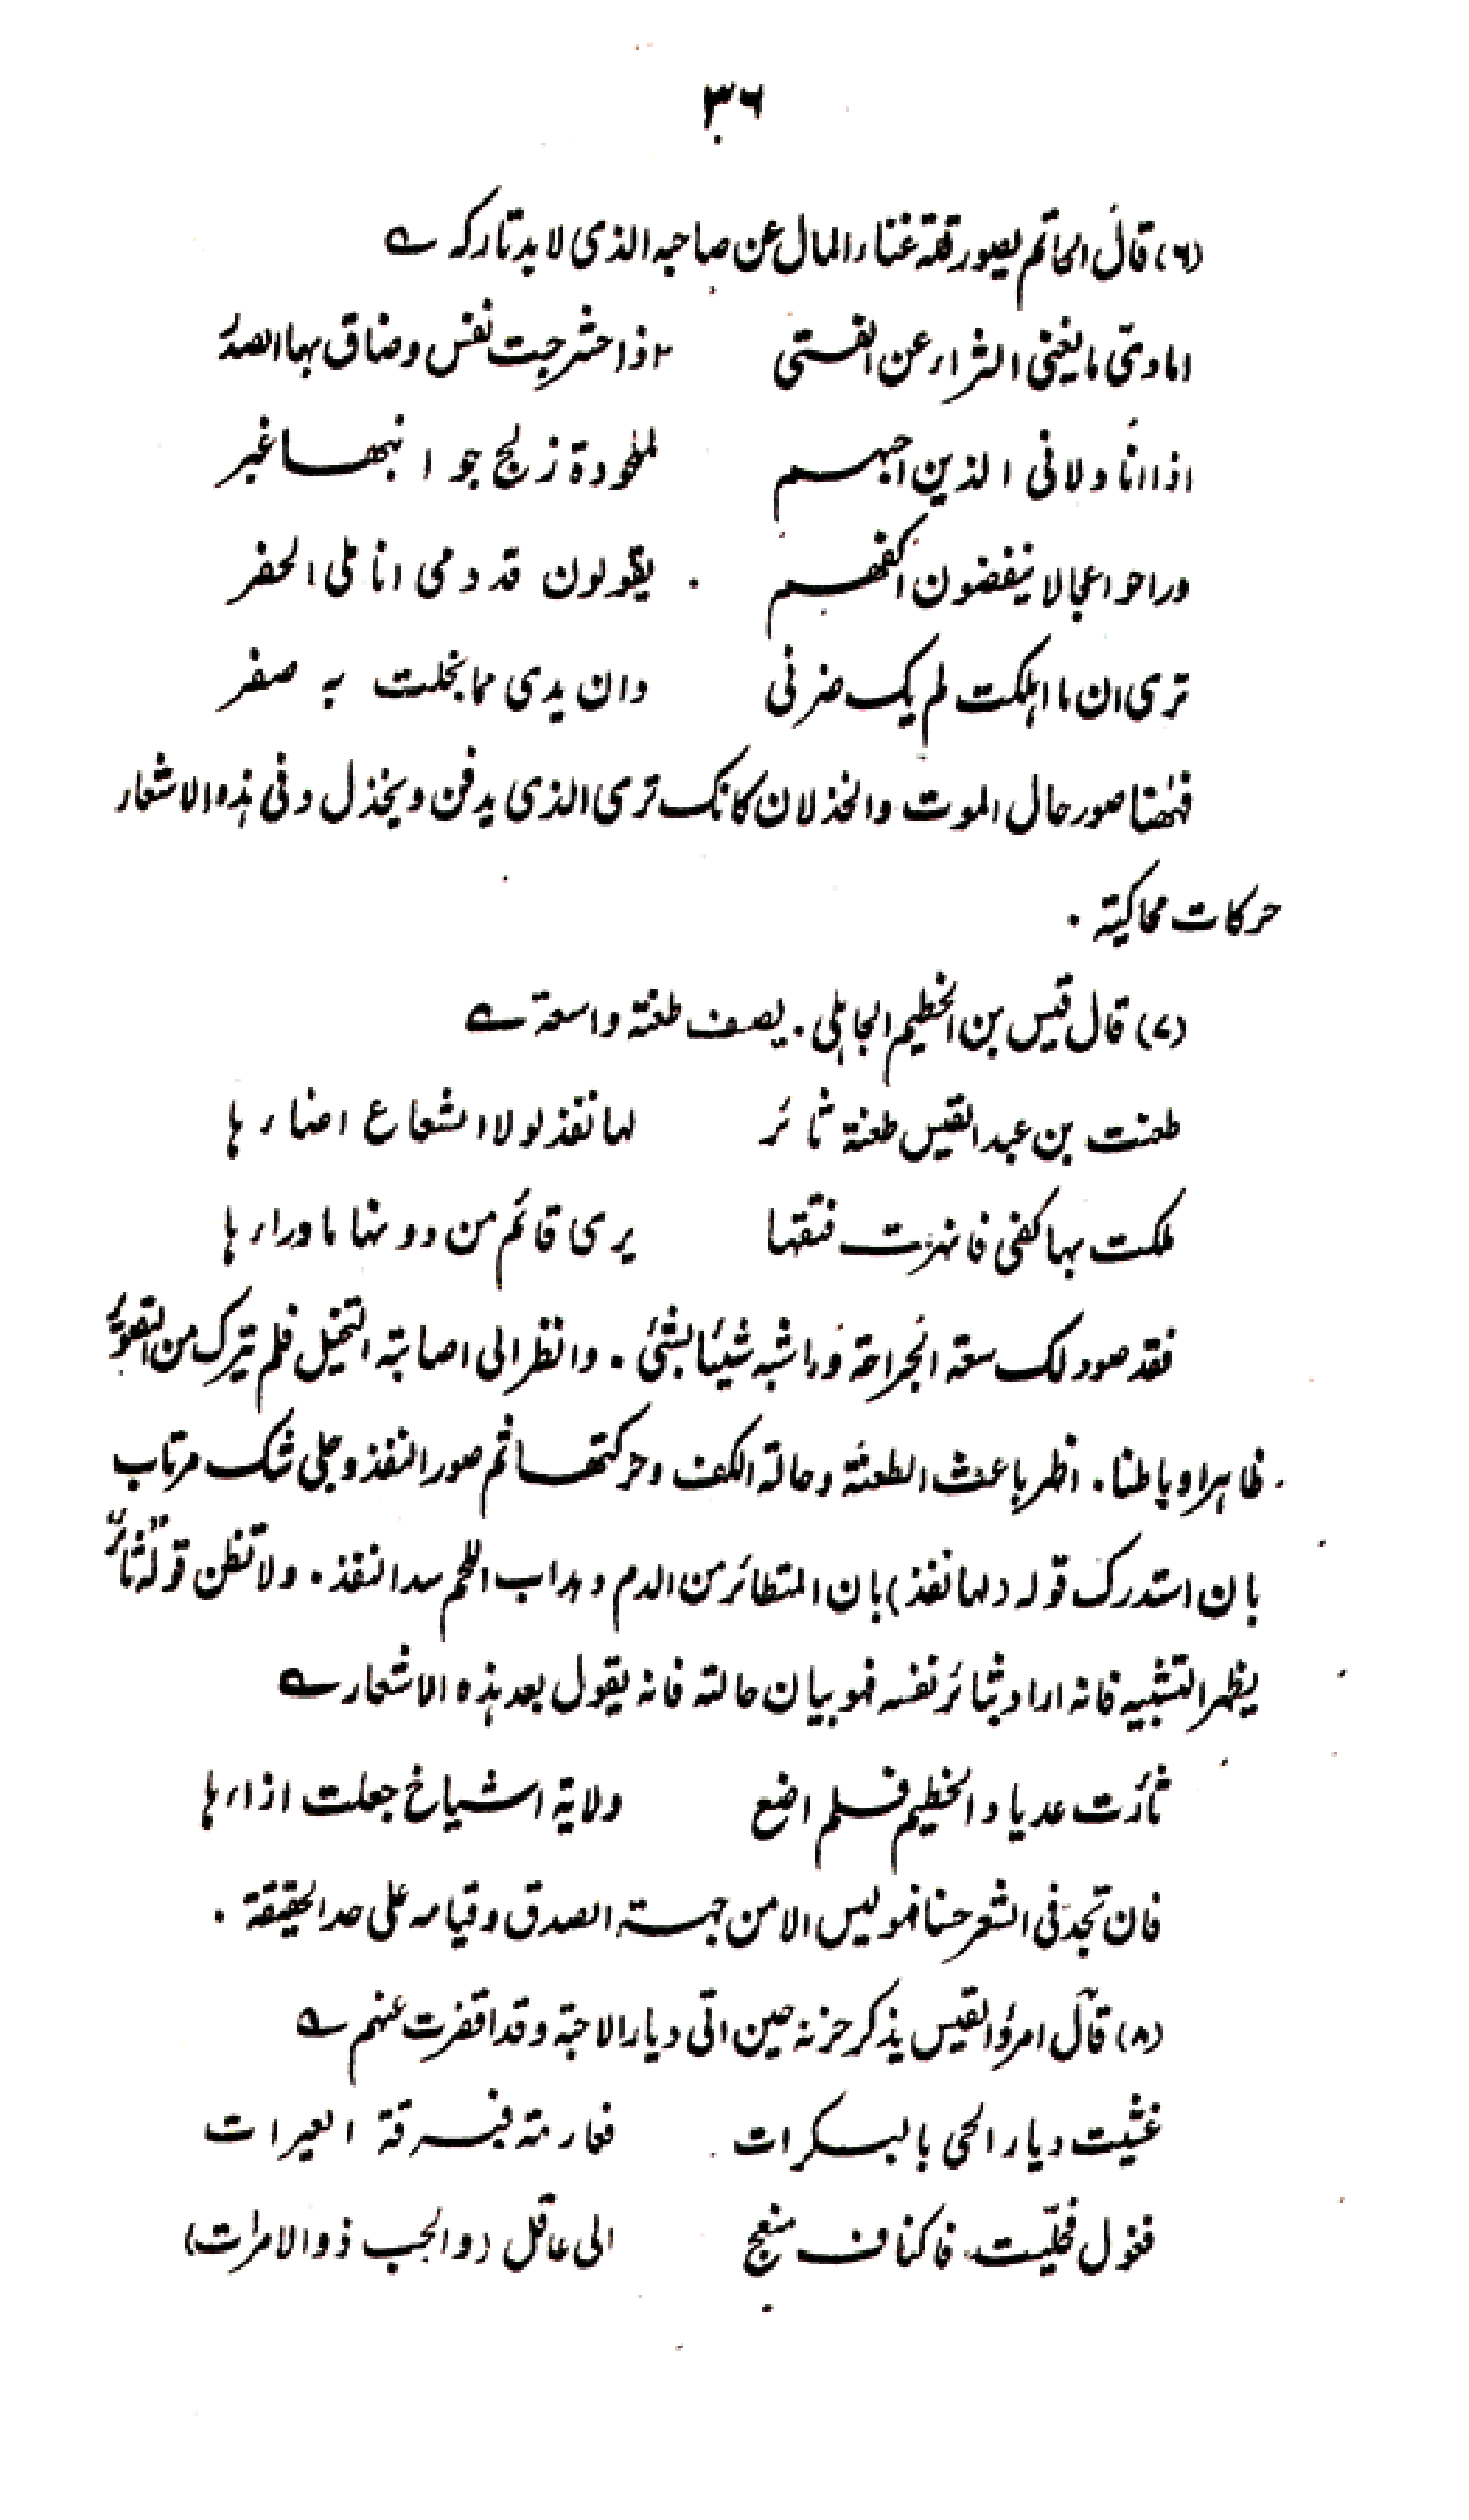 ٣٦
(٦) قال الحاتم يصور قلة غناء المال عن صاحبه الذى لا بد تاركه ے
اماوىّ ما يغنى الثراء عن الفتى اذا حشرجت نفس وضاق بها الصدر
اذا انا ولانى الذين احبهم لملحودة زلج جوانبها غبر
وراحوا عجالا ينفضون اكفهم يقولون قد دمى اناملى الحفر
ترى ان ما اهلكت لم يك ضرنى وان يدى مما بخلت به صفر
فههنا صور حال الموت والخذلان كانك ترى الذى يدفن ويخذل وفى هذه الاشعار
حركات محاكية .
(٧) قال قيس بن الخطيم الجاهلى . يصف طعنة واسعة ے
طعنت بن عبد القيس طعنة ثائر لها نفذ لولا الشعاع اضاءها
ملكت بها كفى فانهرت فتقها يرى قائم من دونها ماوراءها
فقد صور لك سعة الجراحة وما شبه شيئا بشئ . وانظر الى اصابة التخيل فلم يترك من التصوير
ظاهرا وباطنا . اظهر باعث الطعنة وحالة الكف وحركتها ثم صور النفذ وجلى شك مرتاب
بان استدرك قوله (لها نفذ) بان المتطائر من الدم وهداب اللحم سد النفذ . ولا تظن قوله ثائر
يظهر التشبيه فانه اراد بثائر نفسه فهو بيان حالته فانه يقول بعد هذه الاشعار ے
ثأرت عديا والخطيم فلم اضع ولاية اشياخ جعلت ازاءها
فان تجد فى الشعر حسنا فهو ليس الا من جهة الصدق وقيامه على حد الحقيقة .
(٨) قال امرؤ القيس يذكر حزنه حين اتى ديار الاحبة وقد اقفرت عنهم ے
غشيت ديار الحى بالبكرات فعارمة فبرقة العيرات
فغول فحليت فاكناف منعج الى عاقل (والجب ذو الامرات)